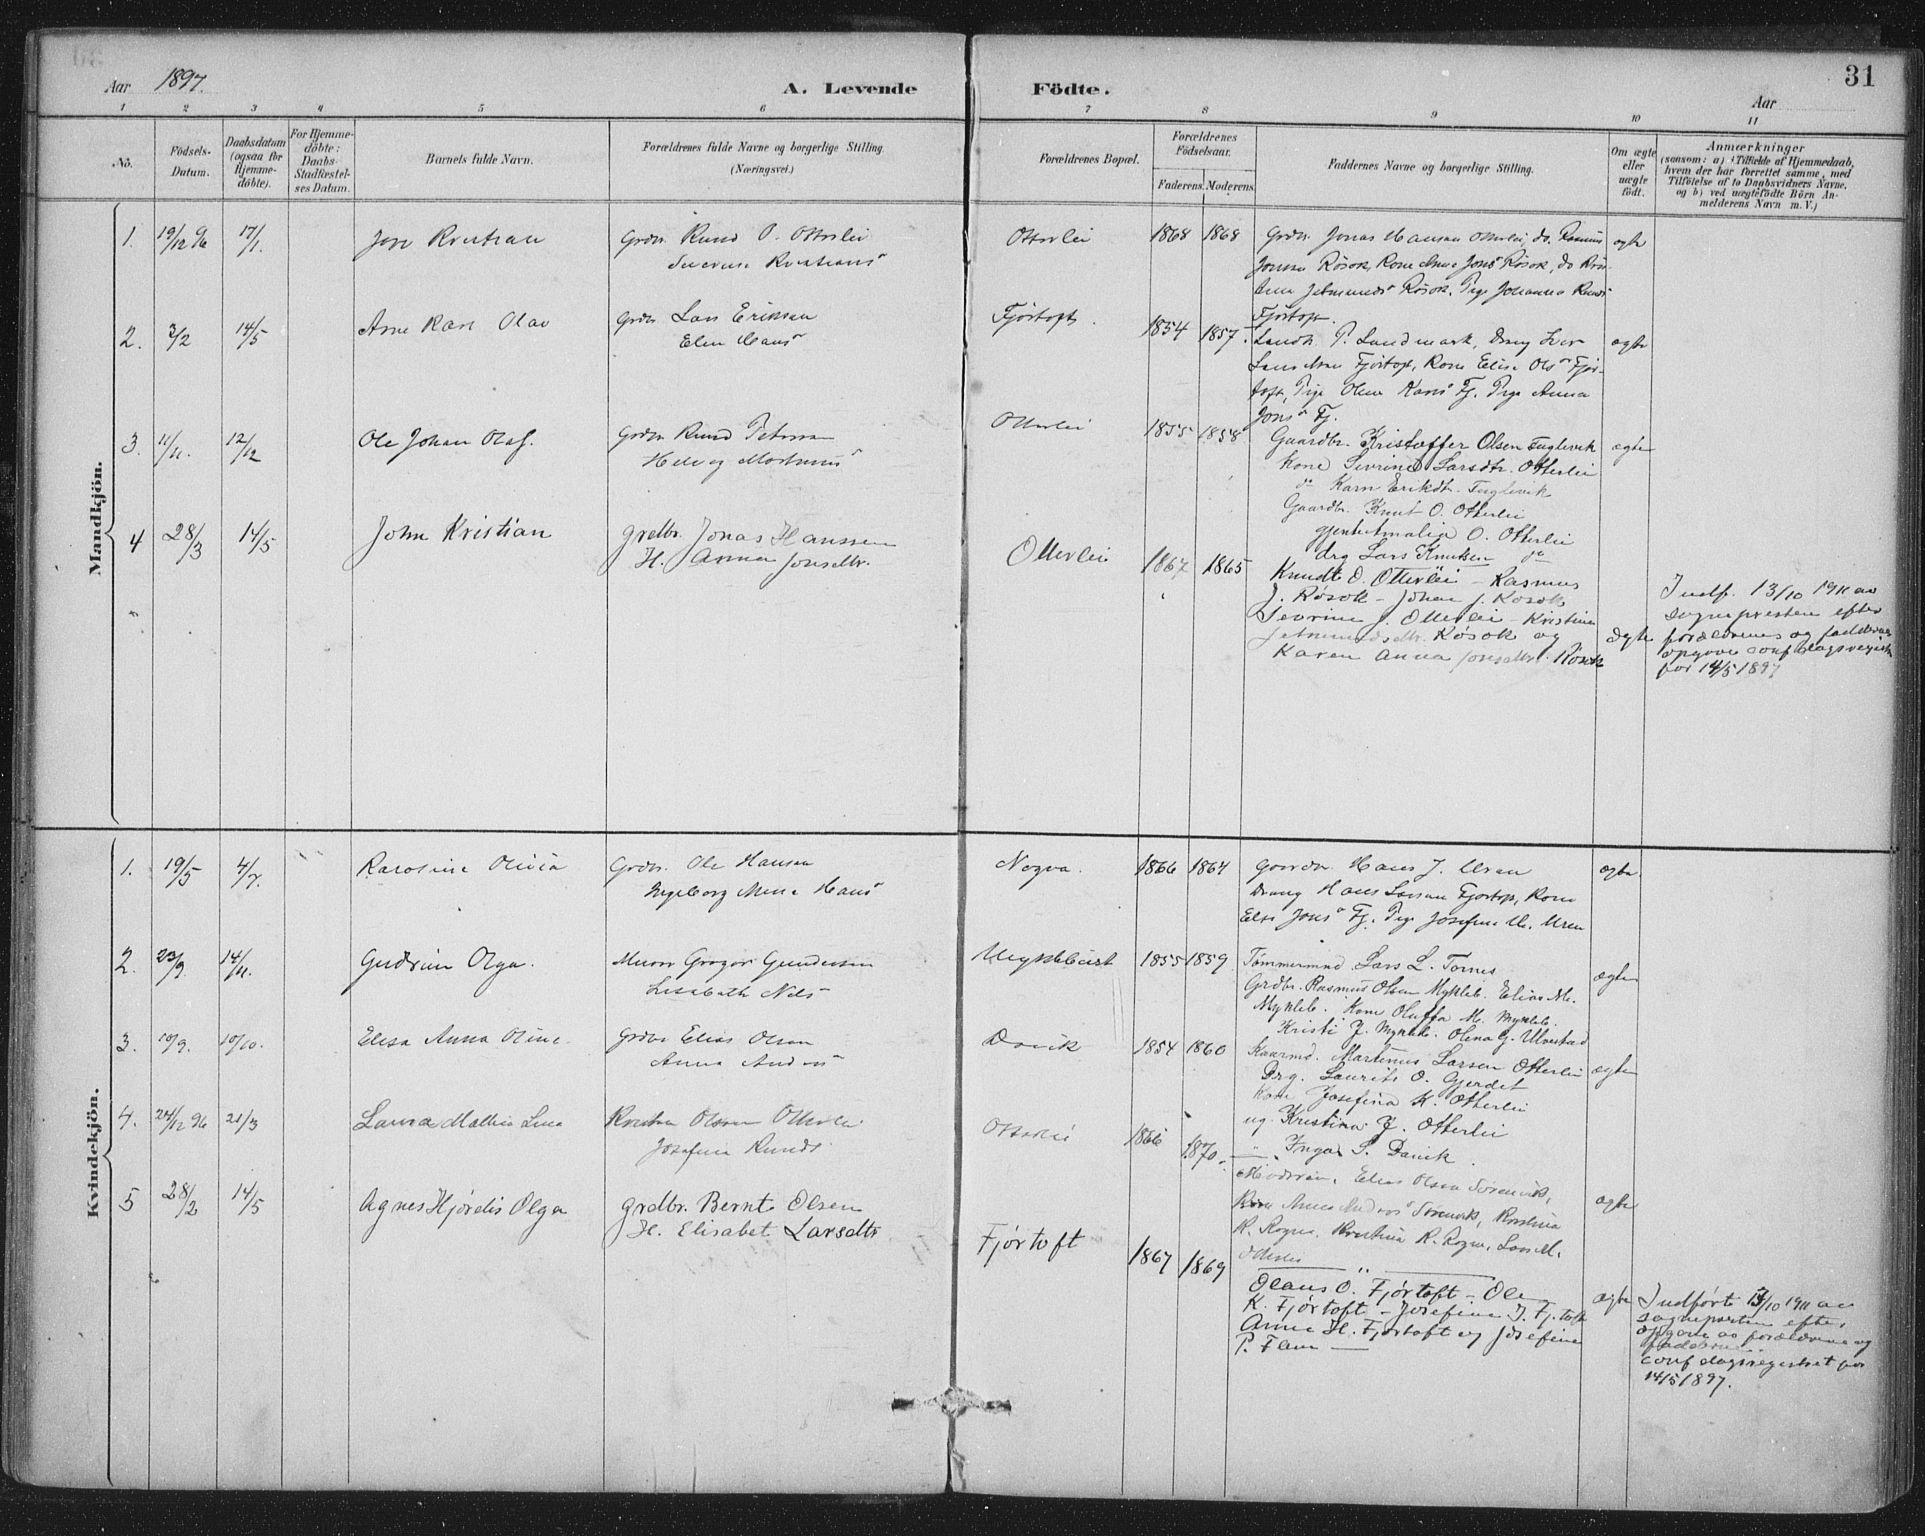 31
Aar 1897.
A. Levende Födte.
Aar
1 2 3 4 5 6 7 8 9 10 11
No.
Födsels-Datum.
Daabsdatum (ogsaa for Hjemme-döbte).
For Hjemme-döbte: Daabs-Stadfæstel-ses Datum.
Barnets fulde Navn.
Forældrenes fulde Navne og borgerlige Stilling. (Næringsvei.)
Forældrenes Bopæl.
Forældrenes Födselsaar.
Faderens. Moderens.
Faddernes Navne og borgerlige Stilling.
Om ægte eller uægte födt.
Anmærkninger
(saasom: a) i Tilfælde af Hjemmedaab,
hvem der har forrettet samme, med
Tilföielse af to Daabsvidners Navne,
og b) ved uægtefödte Börn An-
melderens Navn m. V.)
Mandkjön.
1. 19/12 96 17/1. Grdbr. Knud O. Otterlei Otterlei 1868 1868 Grdbr. Jonas Hansen Otterlei, do. Rasmus ægte
Jonsen Røsok, Kone Anne Jons Røsok, do
Røsok, Pige Johanna Knuds
Fjørtoft.
2. 3/2 14/5 Arne Kare Olav Grdbr. Lars Eriksen Fjørtoft. 1854 1857. P. Landmark, Dreng ægte
Elen Hans
Fjørtoft, Kone Elise Ols Fjør-
toft, Pige Oline Hans Fj. Pige Anna
Jons Fj.
3. 11/11. 12/12 Ole Johan Olaf. Grdbr. Knud Petersen Otterlei 1855 1858 Gaardbr. Kristoffer Olsen Fuglevik ægte
Kone Sevrine Larsdtr. Otterlei
do Karn Erikdtr. Fuglevik
Gaardbr. Knut O. Otterlei
gjente Amalie O. Otterlei
drg Lars Knutsen do
4 28/3 14/5 John Kristian grdbr. Jonas Hanssen Otterlei 1867 1865 Knudt O. Otterlei - Rasmus
H. Anna Jonsdtr.
J. Røsok - Johan J. Røsok,
Sevrine J. Otterlei - Kristine
Røsok og ægte
Karen Anna Jonsdtr. Røsok
Indf. 13/10 1911 av
sognepresten efter
forældrenes og faddernes
opgave conf dagsregistr
for 14/5 1897
Kvindekjön.
1. 19/5 4/7. Karoline Olivia Grdbr. Ole Hansen Nogva. 1866 1864 Gaardbr. Hans J. Uren ægte
Ingeborg Hans
Dreng Hans Larsen Fjørtoft, Kone
Else Jons Fj. Pige Josefine M. Uren
2. 23/9. 14/11. Gudrun Olga. Murer Gregor Gundersen Myklebust 1855 1859 Tømmermand Lars L. Tornes ægte
Lisabeth Nils
Grdbr. Rasmus Olsen Mykleb. Elias M.
Mykleb. Kone Oluffa M. Mykleb.
Kristi J. Mykleb. Olena G. Ulvestad
3. 10/9. 10/10. Elisa Anna Oline. Grdbr Elias Olsen Davik 1854 1860 Kaarmd. Martinus Larsen Otterlei ægte
Anna Andrs
Drg. Laurits O. Gjerdet
Kone Josefina K. Otterlei
ug. Kristina J. Otterlei
" Inga S. Davik.
4. 24/12 96 21/3 Laura Mathea Lina Olsen Otterlei Otterlei 1866 1870. Moderen, Elias Olsen Sørenvik, ægte
Josefine Knuds
R. Rogne, Kristina R. Rogne, Lars M.
Otterlei
5 28/2 14/5 Agnes Hjørdis Olga grdbr. Bernt Olsen Fjørtoft 1867 1869 Olaus O. Fjørtoft - Ole ægte
H. Elisabet Larsdtr
K. Fjørtoft - Josefine J. Fj.toft
Anne H. Fjørtoft og Josefine
P. Flem
Indført 13/10 1911 av
sognepresten efter
opgave av forældrene og
fadderne
conf dagsregistret for
14/5 1897.